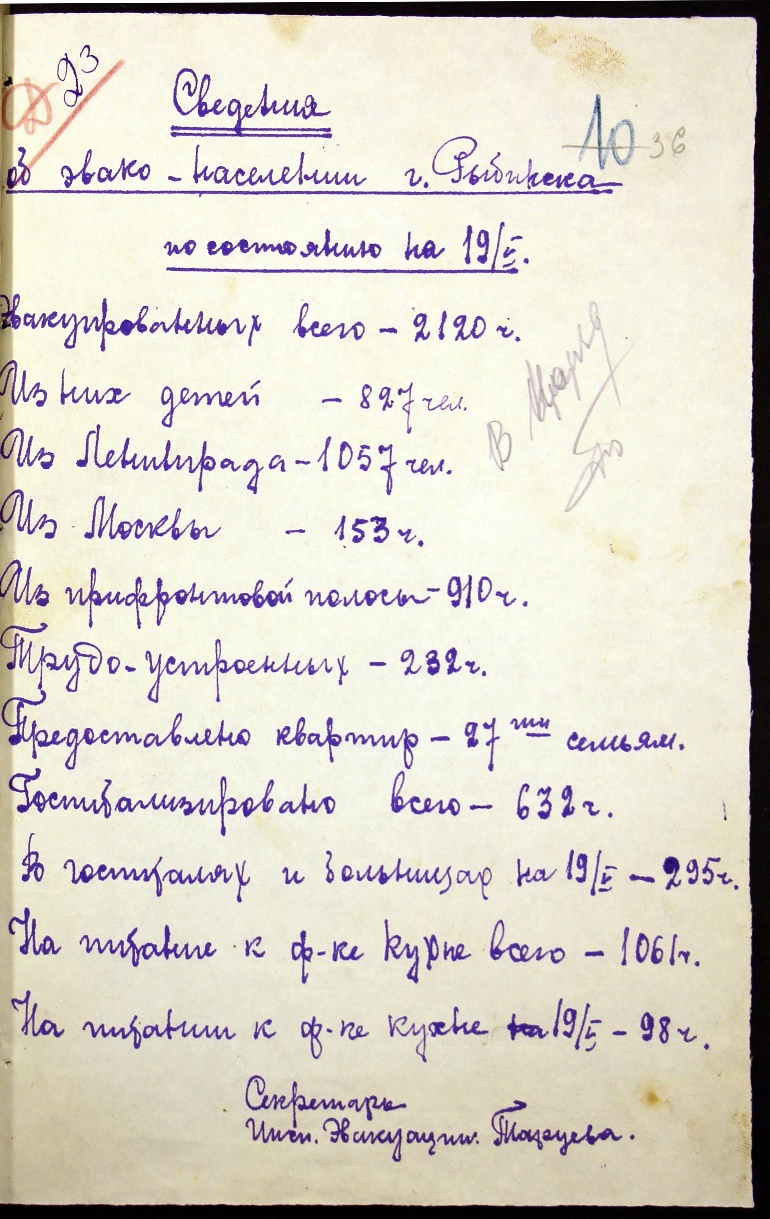 23
Сведения
10 36
об эвако-населении г. Рыбинска
по состоянию на 19/V.
Эвакуированных всего – 2120 ч.
Из них детей – 827 чел.
Из Ленинграда – 1057 чел.
Из Москвы – 153 ч.
Из прифронтовой полосы – 910 ч.
Трудо-устроенных – 232 ч.
Предоставлено квартир – 27ми семьям.
Госпитализировано всего – 632 ч.
В госпиталях и больницах на 19/V – 295 ч.
На питание к ф-ке кухне всего – 1061 ч.
На питании к ф-ке кухне на 19/V – 98 ч.
Секретарь
Инсп. Эвакуации.